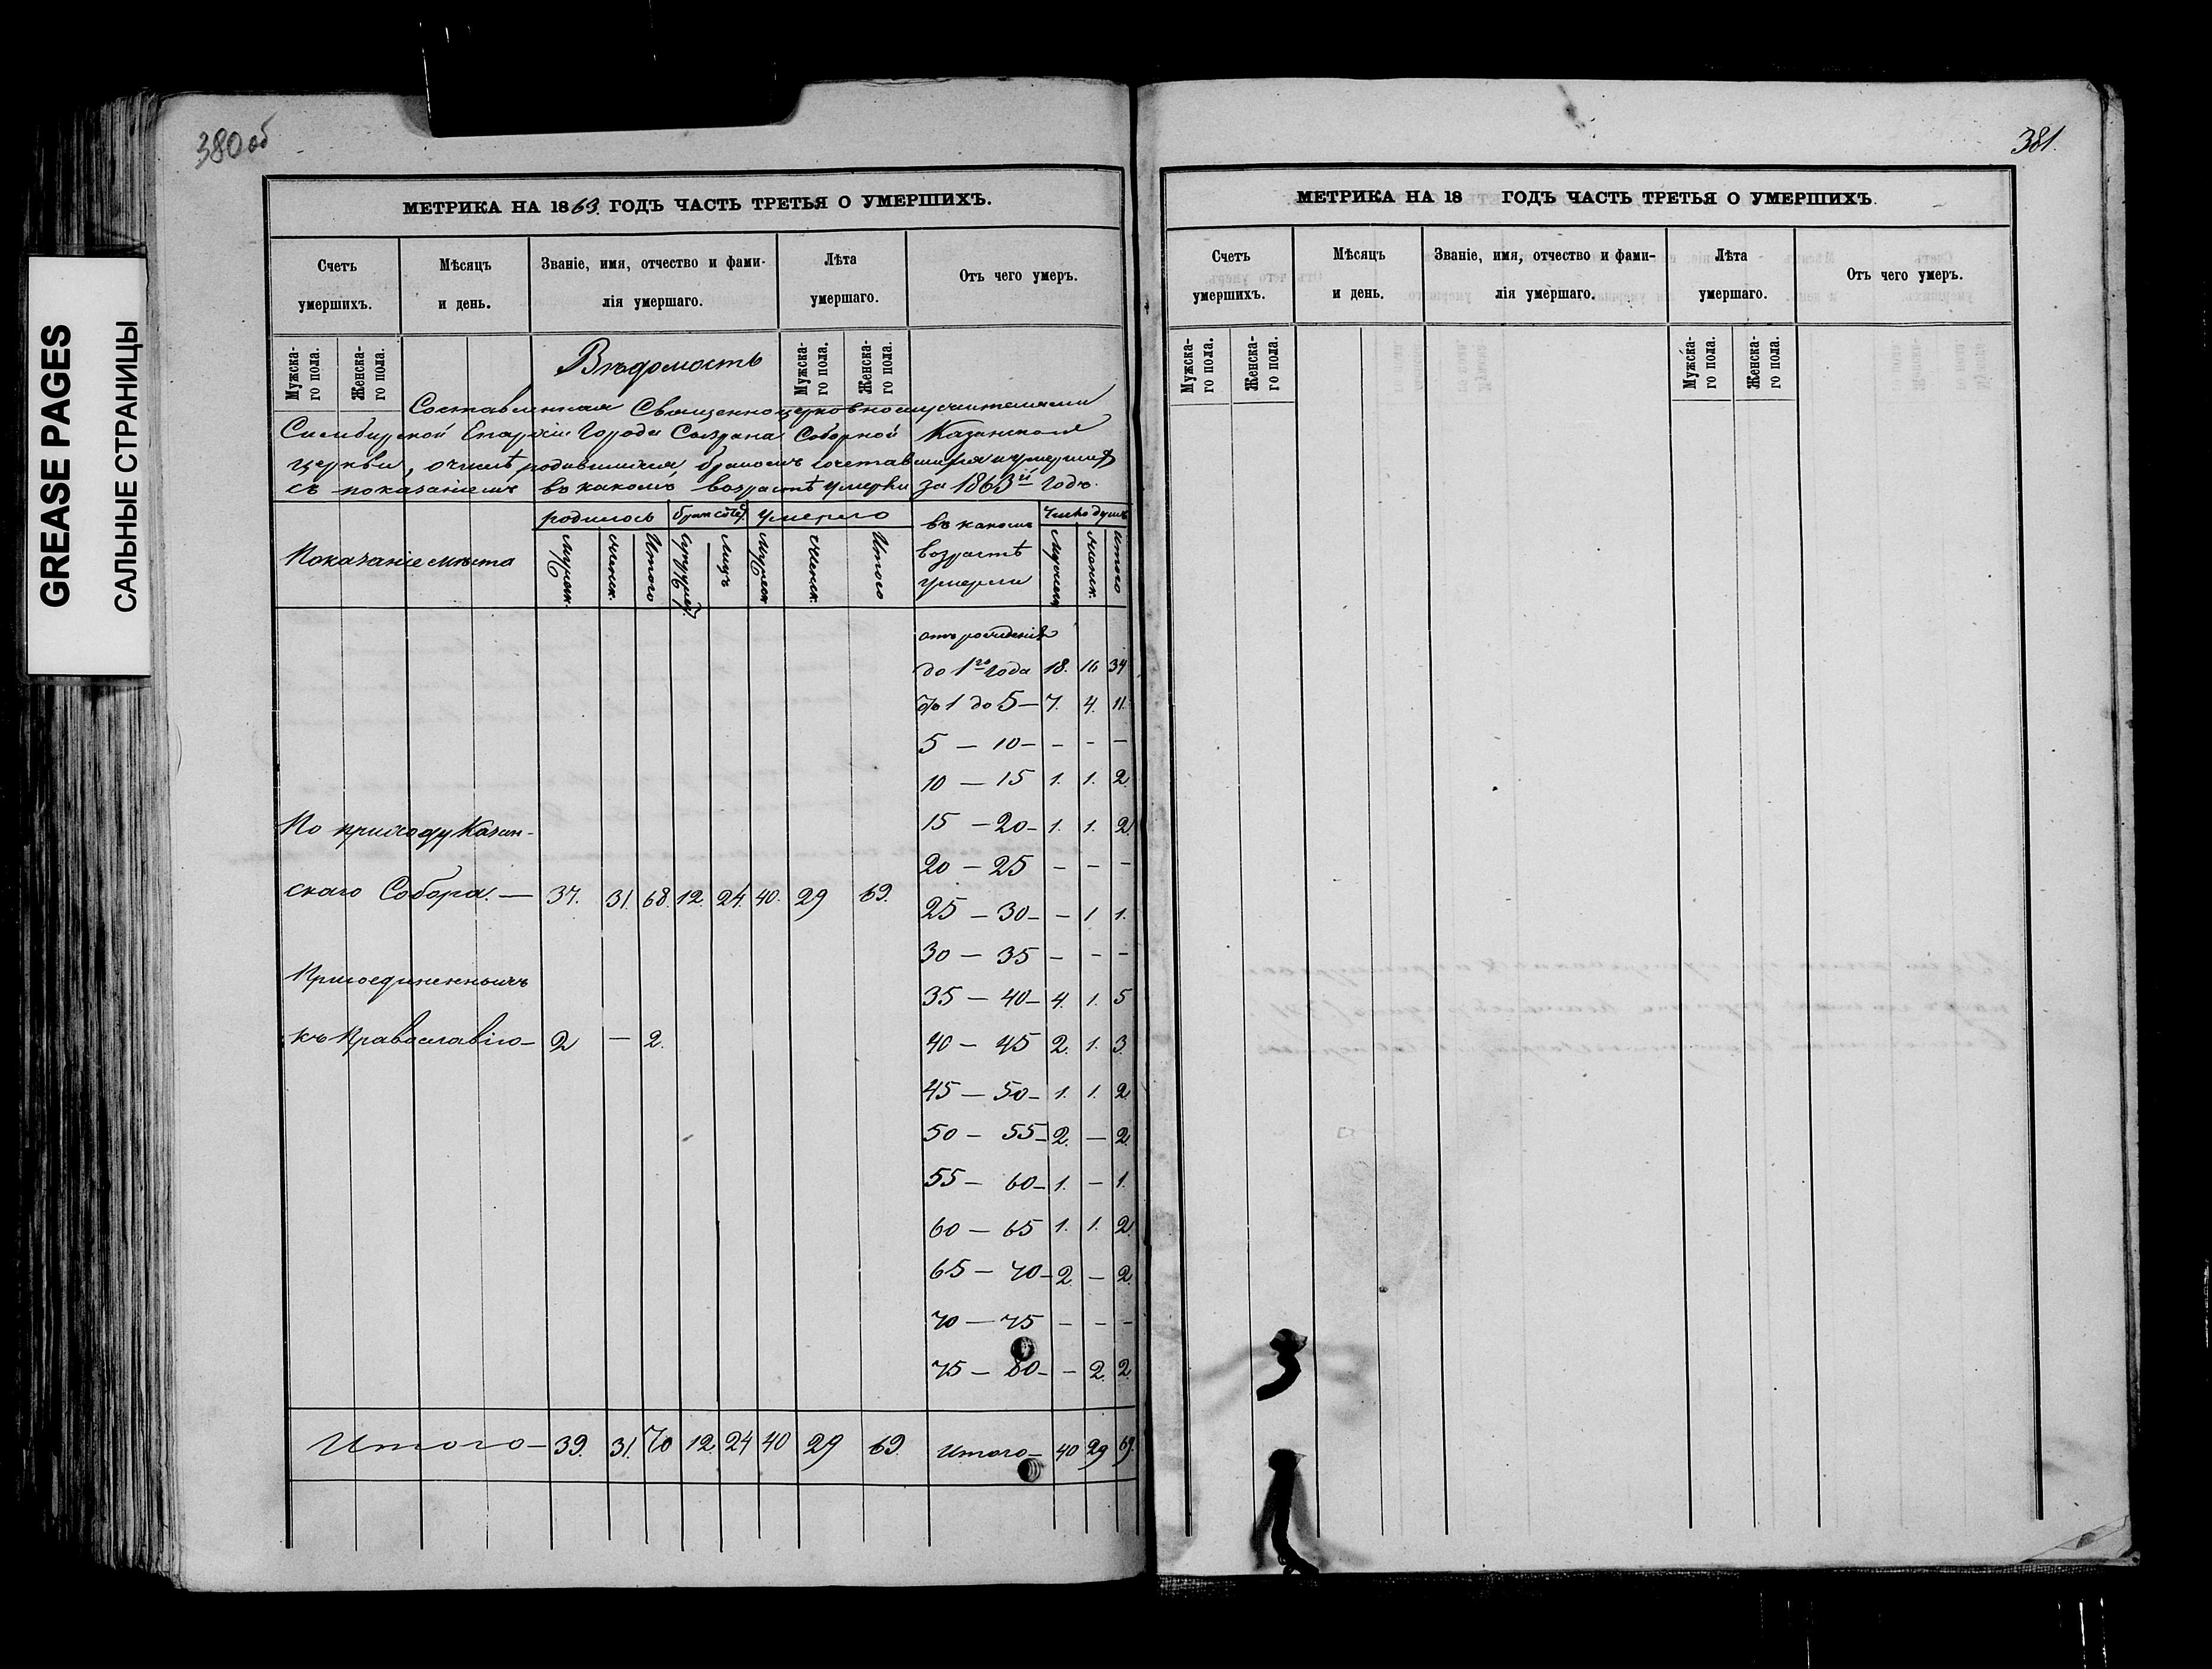 GREASE PAGES
САЛЬНЫЕ СТРАНИЦЫ
380 об
МЕТРИКА НА 1863. ГОДЪ ЧАСТЬ ТРЕТЬЯ О УМЕРШИХЪ.
Счетъ умершихъ.
Мѣсяцъ и день.
Званіе, имя, отчество и фами-
лія умершаго.
Лѣта умершаго.
Отъ чего умеръ.
Мужска-
го пола.
Женска-
го пола.
Мужска-
го пола.
Женска-
го пола.
Вѣдомость
Составленная Священноцерковнослужителями
Симбирской Епархіи Города Сызрана Соборной Казанской
церкви, о числѣ родившихся бракомъ сочетавшихся и умершихъ
съ показаніемъ въ какомъ возрастѣ умерли за 1863й годъ.
Показаніе мѣста
родилось
брак соч.
умерло
въ какомъ
возрастѣ
умерли
Число душъ
Мужск.
Женск.
Итого
Супружес.
Лицъ
Мужск
Женск.
Итого
Мужеск
Женск.
Итого
отъ рожденія
до 1го года 18. 16 34
Отъ 1 до 5 — 7. 4. 11.
5 — 10 — — — —
10 — 15 1. 1. 2.
15 — 20 — 1. 1. 2.
20 — 25 — — —
25 — 30 — — 1 1.
30 — 35 — — —
35 — 40 — 4. 1. 5
40 — 45 2. 1. 3.
45 — 50 — 1. 1. 2.
50 — 55 — 2. — 2.
55 — 60 — 1. — 1.
60 — 65 1. 1. 2.
65 — 70 — 2. — 2.
70 — 75 — — —
75 — 80 — — 2. 2.
По приходу Казан-
скаго Собора. — 37. 31. 68. 12. 24. 40. 29 69.
Присоединенныхъ
къ Православію — 2 — 2.
Итого — 39. 31. 70 12. 24 40 29 69.
Итого — 40 29 69.
381.
МЕТРИКА НА 18 ГОДЪ ЧАСТЬ ТРЕТЬЯ О УМЕРШИХЪ.
Счетъ умершихъ.
Мѣсяцъ и день.
Званіе, имя, отчество и фами-
лія умершаго.
Лѣта умершаго.
Отъ чего умеръ.
Мужска-
го пола.
Женска-
го пола.
Мужска-
го пола.
Женска-
го пола.